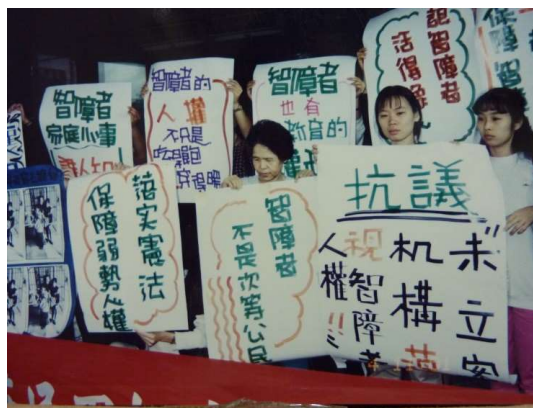 智障者
家庭心事
誰人知!
智障者的
人權
不只是
吃得飽
穿得暖
智障者
也有
教育的
智障者
活得像
保障
落實憲法
保障弱勢人權
智障者
不是次等公民
抗議
未立案
机構藐
視智障者
人權!!